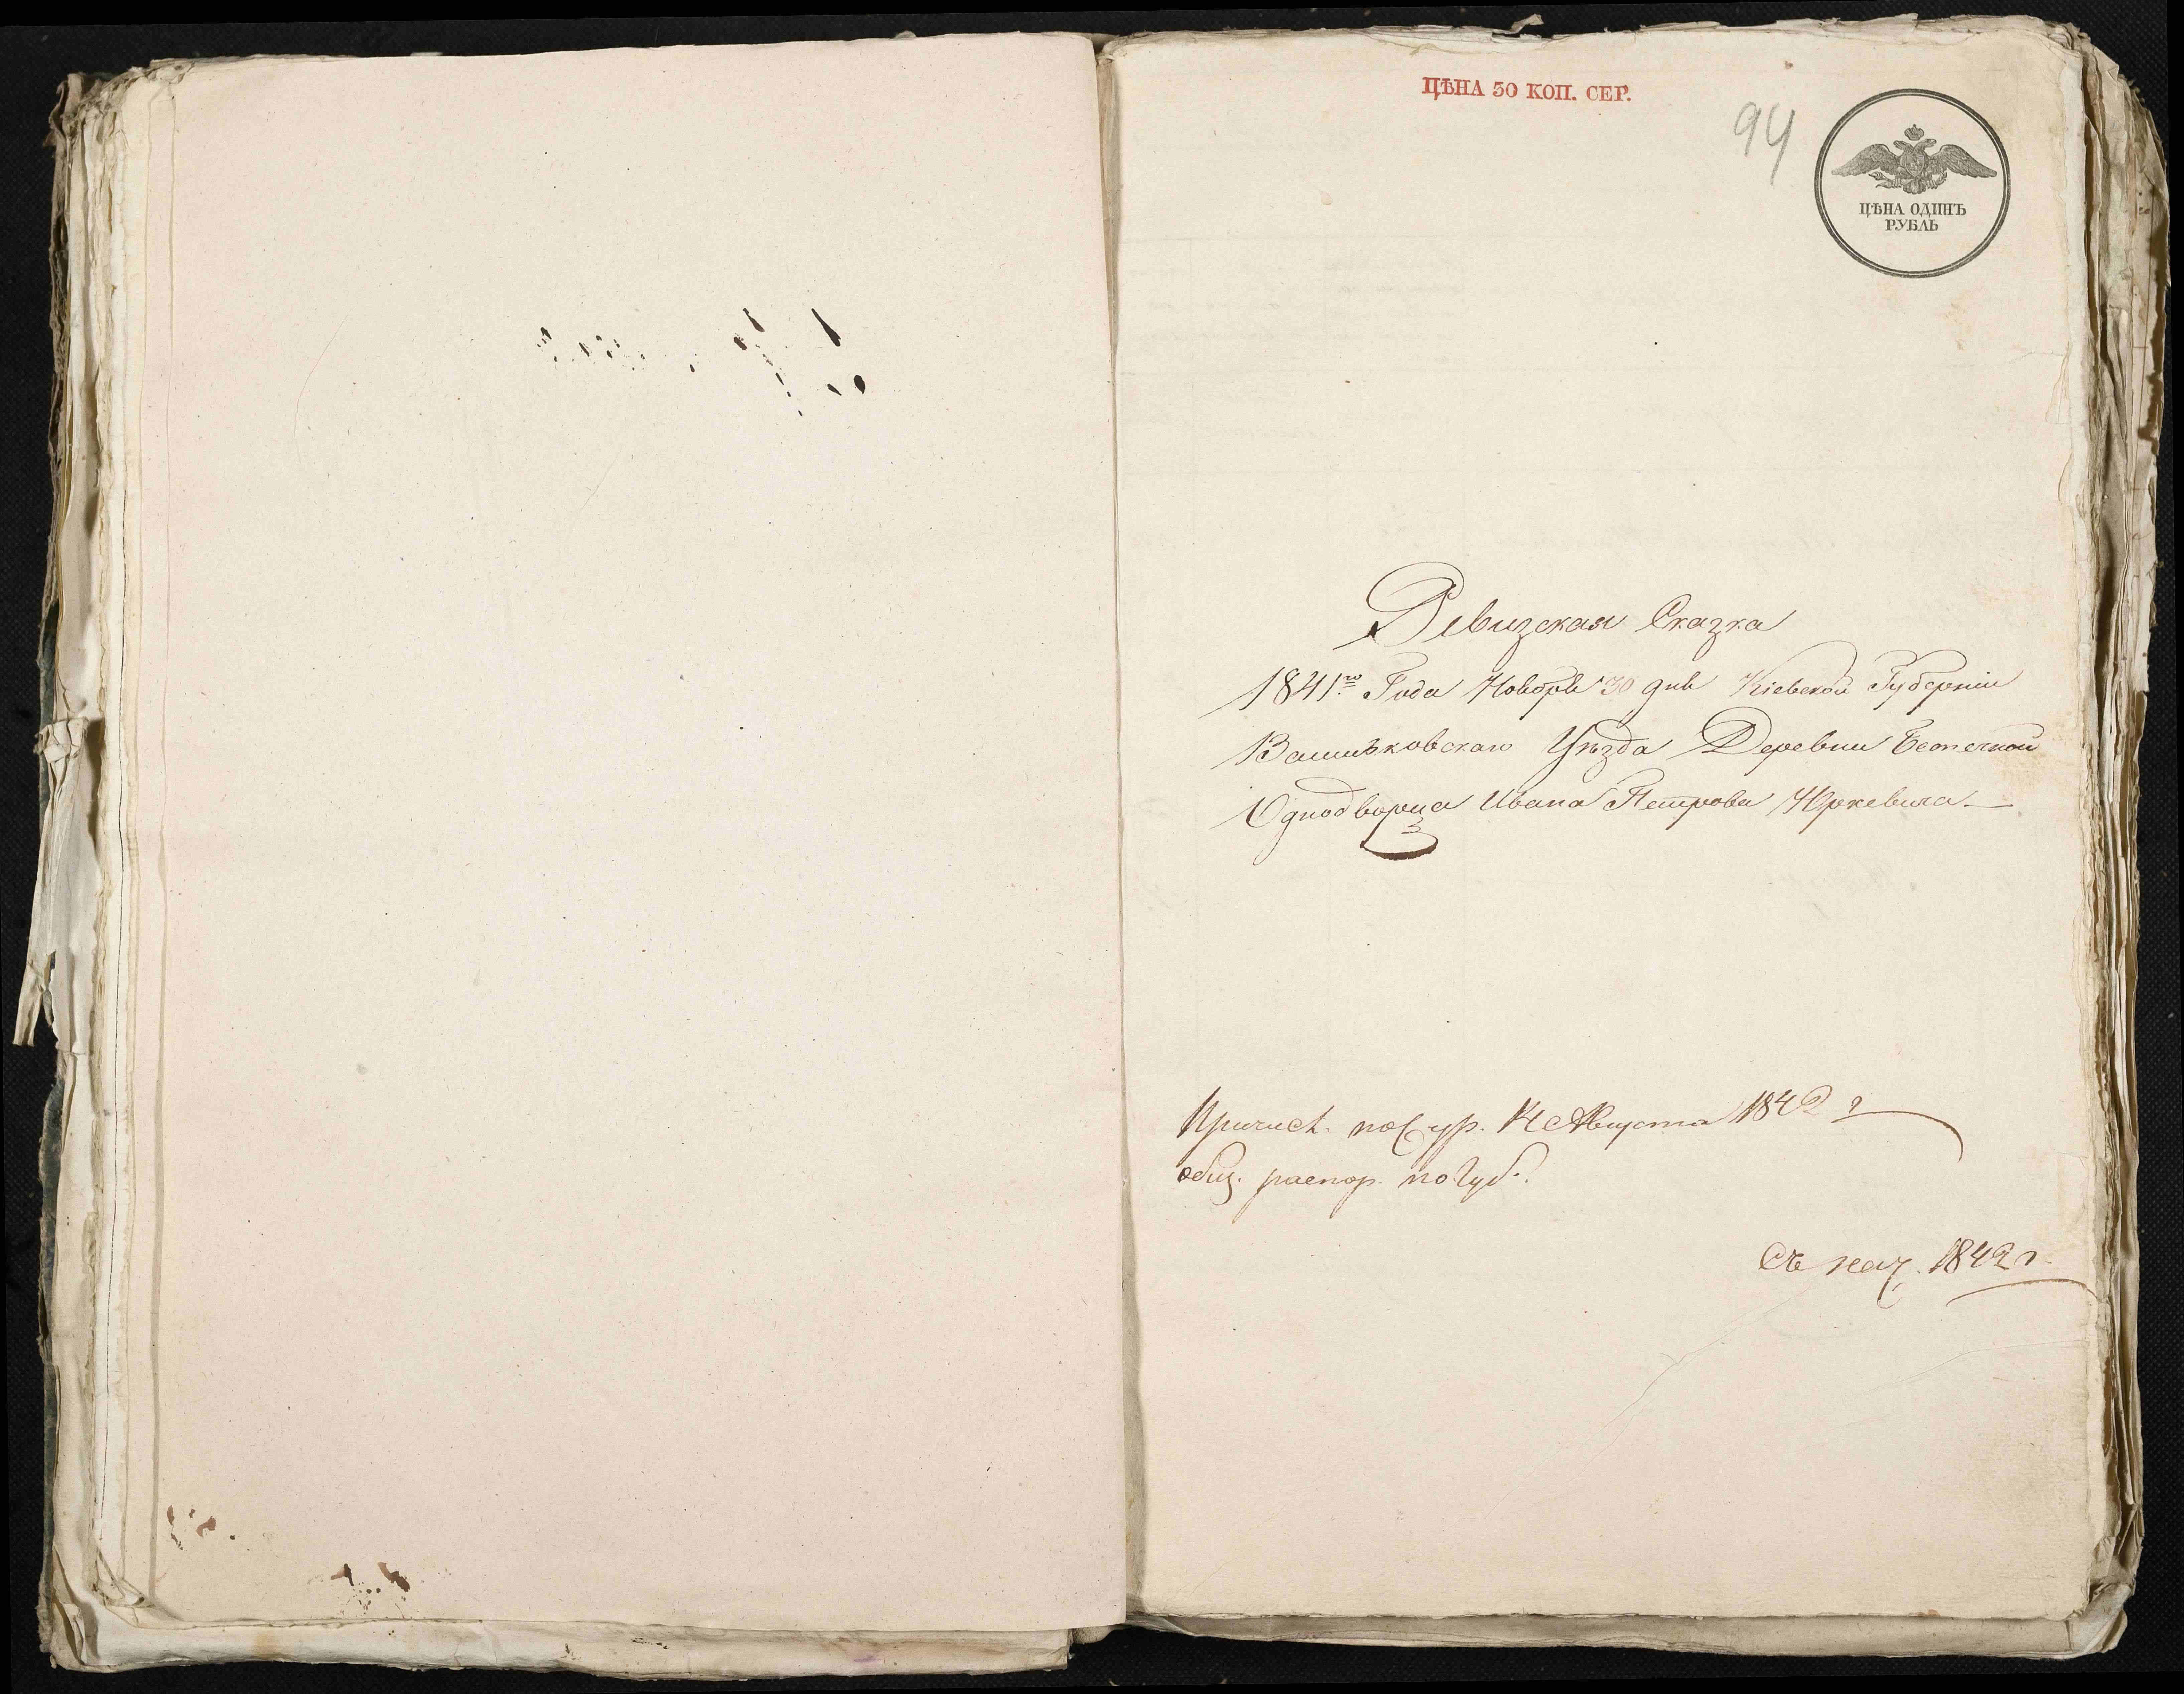 ЦѢНА 50 КОП. СЕР.
94
ЦѢНА ОДИНЪ
РУБЛЬ
Ревизская Сказка
1841го Года Ноября 30 дня Кіевской Губерніи
Васильковскаго Уѣзда Деревни Безпечной
Однодворца Ивана Петрова Юркевича
Причисл. по ур. 14 Августа 1842 г
общ. распор. по Губ.
Съ нач. 1842 г.